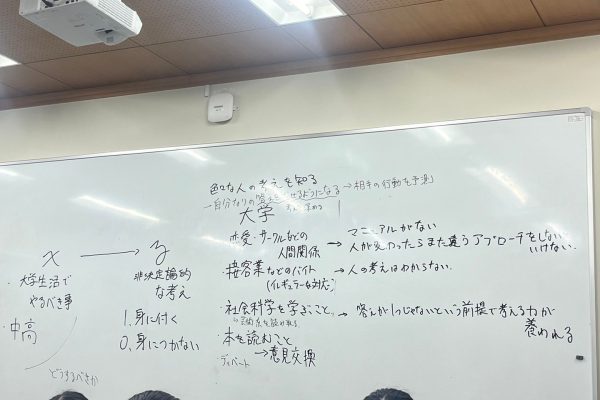 色々な人の考えを知る
→自分なりの答えを出せるようになる→相手の行動を予測
大学
x → y
・大学生活で
やるべき事
中高
どうするべきか
非決定論的
な考え
1, 身に付く
0, 身につかない
恋愛・サークルなどの
人間関係 → マニュアルがない
人が変わったらまた違うアプローチをしないといけない。
・接客業などのバイト → 人の考えはわからない。
(イレギュラーな対応)
・社会科学を学ぶこと → 答えが1つじゃないという前提で考える力が
養われる
・本を読むこと
ディベート → 意見交換